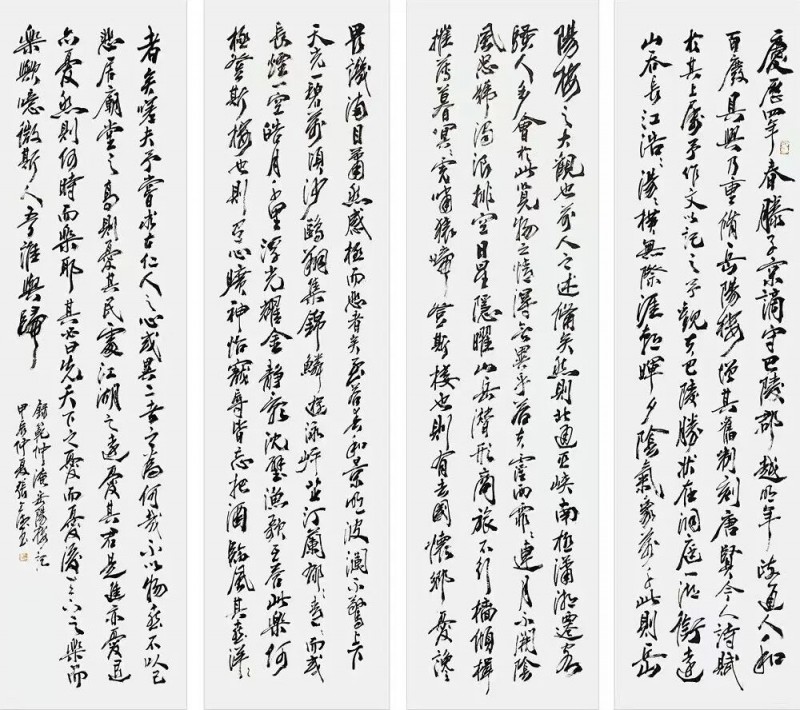 慶曆四年春滕子京謫守巴陵郡越明年政通人和
百廢具興乃重脩岳陽樓增其舊制刻唐賢今人詩賦
於其上屬予作文以記之予觀夫巴陵勝狀在洞庭一湖銜遠
山吞長江浩浩湯湯橫無際涯朝暉夕陰氣象萬千此則岳
陽樓之大觀也前人之述備矣然則北通巫峽南極瀟湘遷客
騷人多會於此覽物之情得無異乎若夫霪雨霏霏連月不開陰
風怒號濁浪排空日星隱曜山岳潛形商旅不行檣傾楫
摧薄暮冥冥虎嘯猿啼登斯樓也則有去國懷鄉憂讒
畏譏滿目蕭然感極而悲者矣至若春和景明波瀾不驚上下
天光一碧萬頃沙鷗翔集錦鱗游泳岸芷汀蘭郁郁青青而或
長煙一空皓月千里浮光耀金靜影沈璧漁歌互答此樂何
極登斯樓也則有心曠神怡寵辱皆忘把酒臨風其喜洋洋
者矣嗟夫予嘗求古仁人之心或異二者之為何哉不以物喜不以己
悲居廟堂之高則憂其民處江湖之遠憂其君是進亦憂退
亦憂然則何時而樂耶其必曰先天下之憂而憂後天下之樂而
樂歟噫微斯人吾誰與歸
錄范仲淹岳陽樓記
甲辰仲夏張